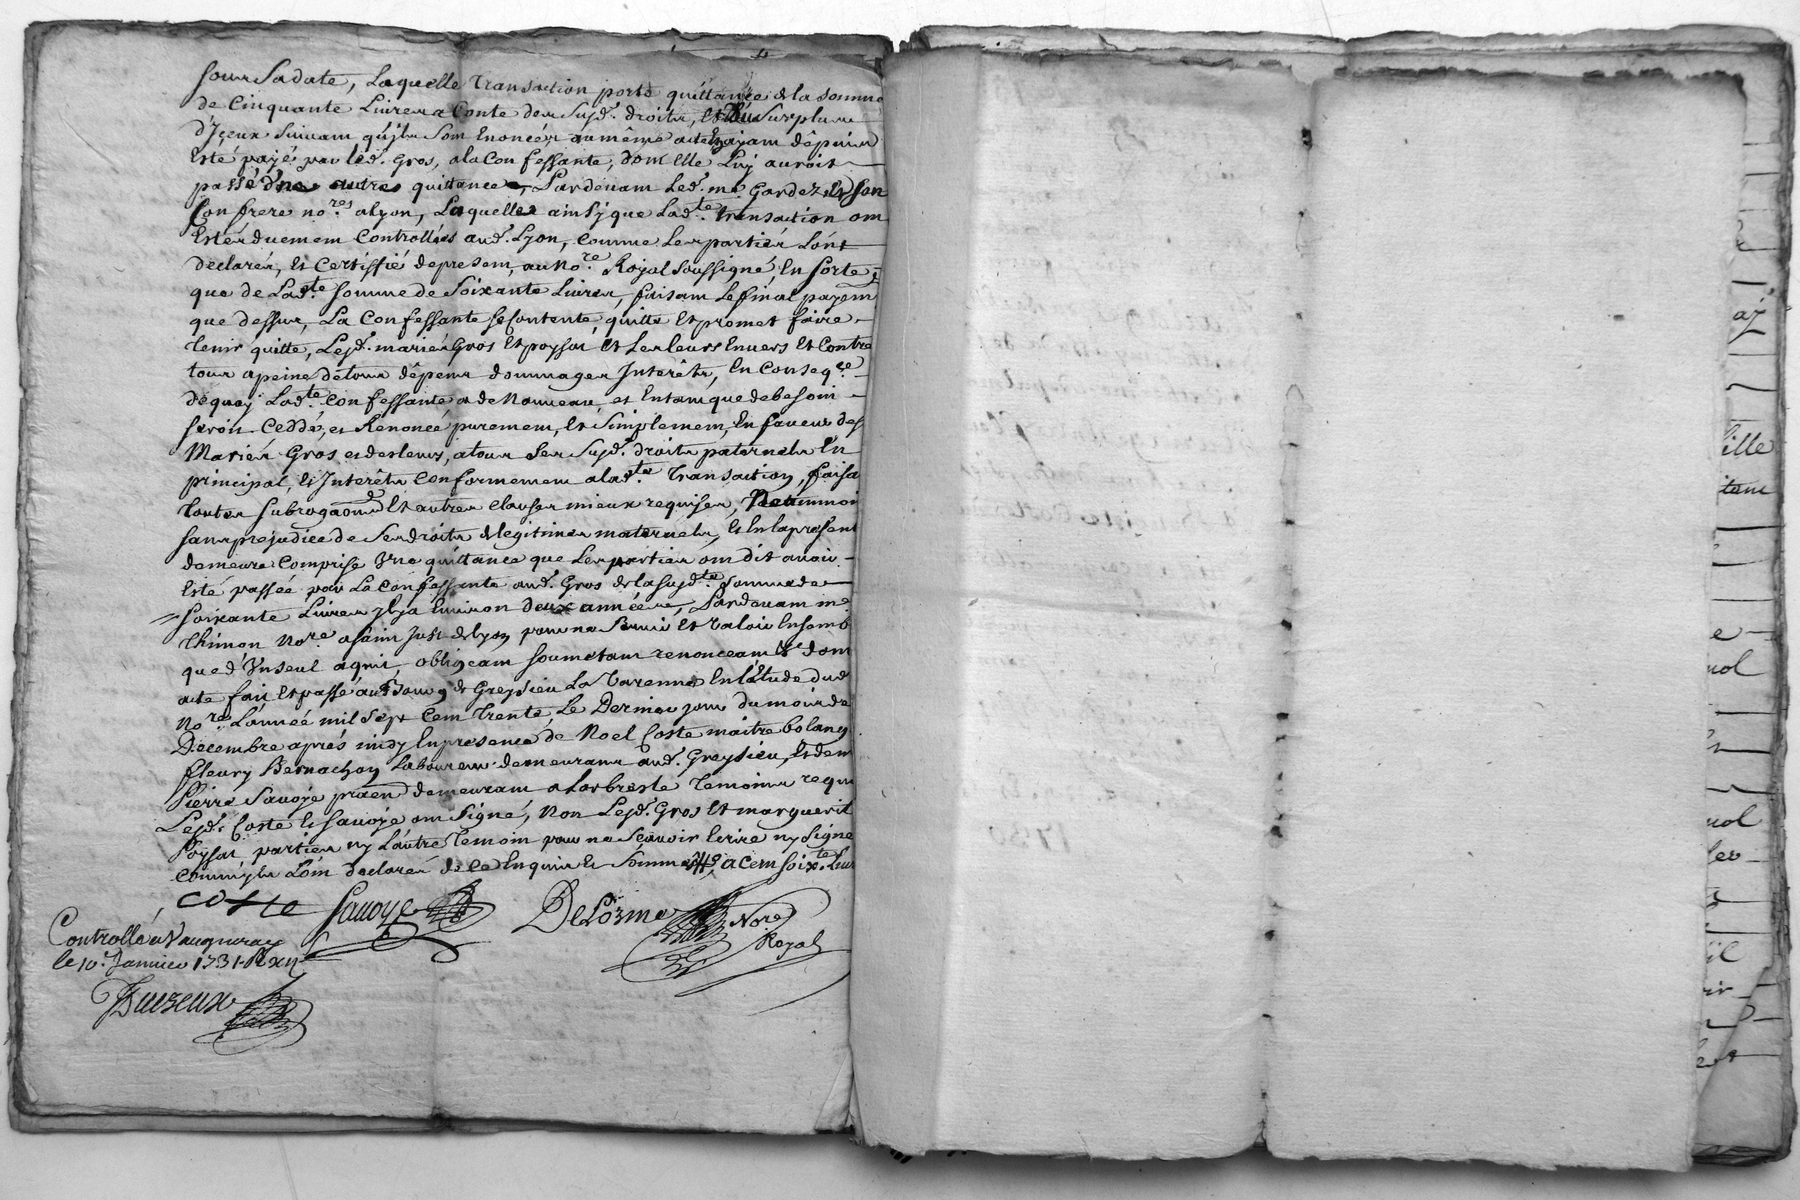 sous Sadate, Laquelle transaction porte quittance de la somme
de Cinquante Livres a Conte des Susd. droits, et du Surplus
d'Iceux Suivant qu'ils Sont Enoncés au même acte ayant dêpuis
Esté payé par led. Gros, a la Confessante, dont elle Luy auroit
passé d'ne autres quittance, Pardevant Led. me Gardez et Son
Confrere no.res a Lyon, Laquelle ainsy que Lad.te transaction ont
Estés duement Controllées aud. Lyon, Comme Les parties L'ont
déclarés, et Certiffié depresent, au No.re Royal Soussigné, En Sorte
que de Lad.te Somme de Soixante Livres, faisant Le final payem
que dessus, La Confessante se Contente, quitte Et promet faire
tenir quitte, Lesd. mariés Gros et poysat et Les leurs Envers Et Contre
tous a peine de tous dêpens dommages Interêts, En Conseq.ce
déquoy Lad.te Confessante a de Nouveau, et Entant que de besoin
Seroit Ceddé, et Rénoncé purement, Et Simplement, En faveur des
Mariés Gros et des leurs, a tous Ses Susd. droits paternels En
principal, et Interêts Conformement a lad.te transaction, faisa
toutes Subrogaons Et autres Clauses mieux requises, Neammoi
Sans prejudice de Ses droits de legitimes maternels, Et En la present
demeure Comprise Une quittance que Les parties ont dit avoir
Esté passée par La Confessante aud. Gros de la Susd.te Somme de
Soixante Livres Il y a Environ deux années, Pardevant me
Thimon No.re a Saint Just de Lyon pour ne Servir Et Valoir Ensemb
que d'Un seul aquit obligeant Soumetant renonceant &c dont
acte fait Et passé au Bourg de Greysieu La Varenne En L'Etude dud
No.re L'année mil Sept Cent Trente, Le Dernier jour du mois de
Décembre aprés midy En presence de Noel Coste maitre bolang
fleury Bernachon Laboureur demeurans aud. Greysieu, Et de m
Pierre Savoye praën demeurant a Larbresle Temoins requ
Lesd. Coste et Savoye ont Signé, Non Lesd. Gros Et marguerit
Poysat parties ny L'autre temoin pour ne Scavoir Ecrire ny Signe
Comm'ils L'ont declaré de ce Enquis Et Sommés, a Cent Soix.te
Coste Savoye DeLorme Nore
Royal
Controllé a Vaugneray
le 10. Janvier 1731. R xii